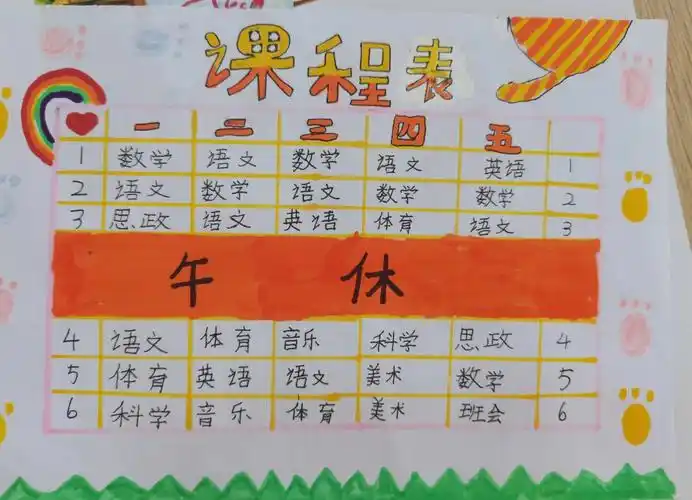 课程表
一 二 三 四 五
1 数学 语文 数学 语文 英语 1
2 语文 数学 语文 数学 数学 2
3 思政 语文 英语 体育 语文 3
午休
4 语文 体育 音乐 科学 思政 4
5 体育 英语 语文 美术 数学 5
6 科学 音乐 体育 美术 班会 6